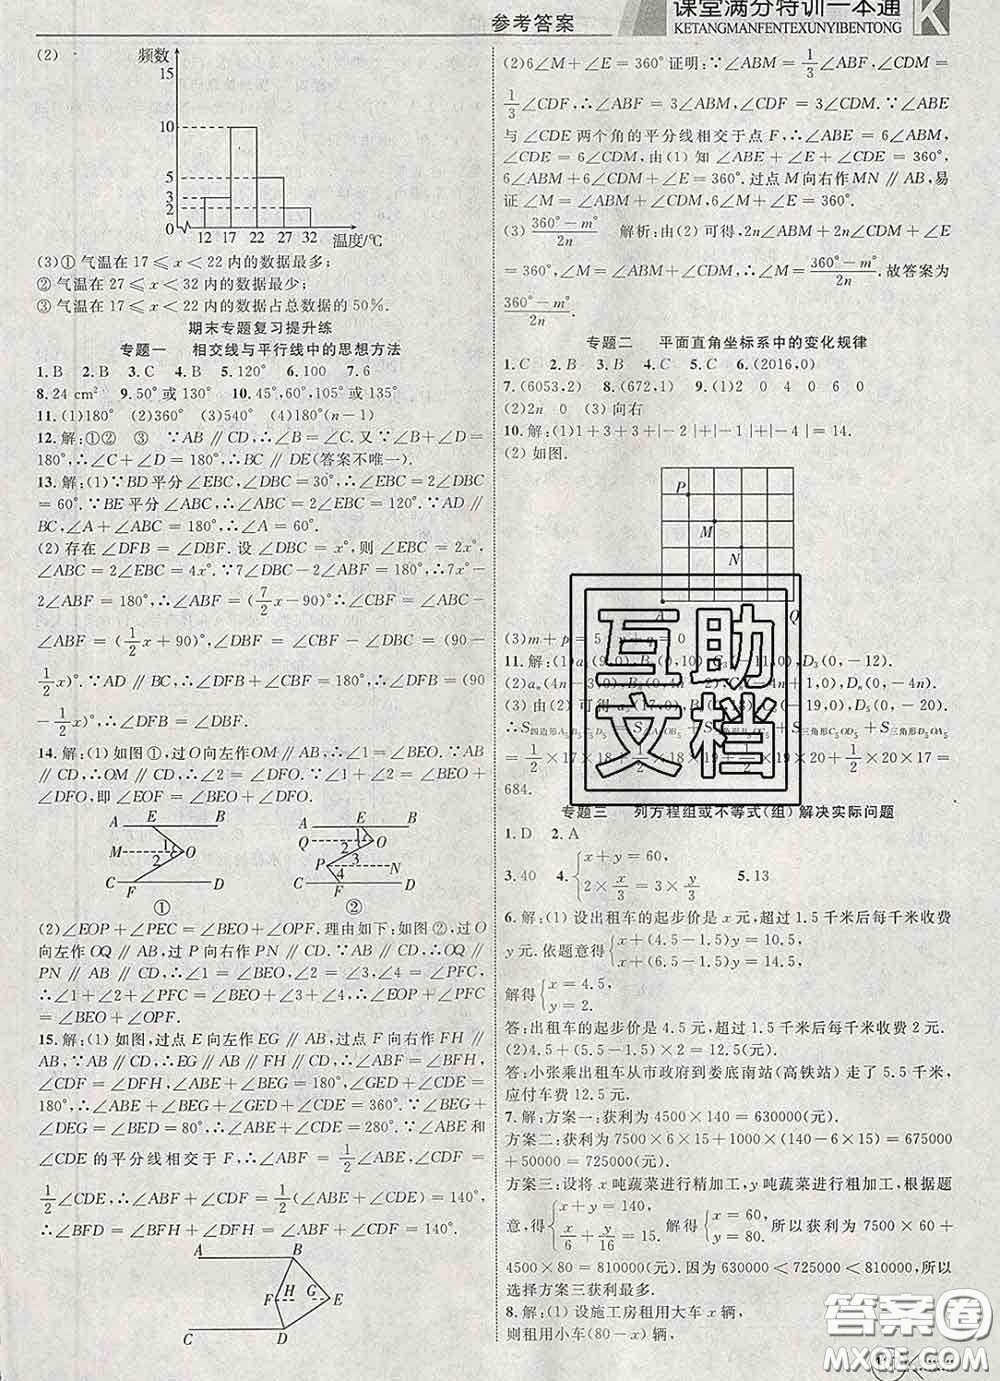 参考答案
课堂满分特训一本通
KETANGMANFENTEXUNYIBENTONG
K
(2)
频数
15
10
5
3
2
0
12 17 22 27 32 温度/℃
(3)① 气温在 17≤x<22 内的数据最多;
② 气温在 27≤x<32 内的数据最少;
③ 气温在 17≤x<22 内的数据占总数据的 50%.
期末专题复习提升练
专题一 相交线与平行线中的思想方法
1. B 2. B 3. C 4. B 5. 120° 6. 100 7. 6
8. 24 cm² 9. 50° 或 130° 10. 45°,60°,105°或 135°
11. (1)180° (2)360° (3)540° (4)180°(n-1)
12. 解:①② ③ ∵AB∥CD,∴∠B=∠C. 又∵∠B+∠D=
180°,∴∠C+∠D=180°,∴BC∥DE(答案不唯一).
13. 解:(1)∵BD平分∠EBC,∠DBC=30°,∴∠EBC=2∠DBC
=60°. ∵BE平分∠ABC,∴∠ABC=2∠EBC=120°. ∵AD∥
BC,∴∠A+∠ABC=180°,∴∠A=60°.
(2)存在∠DFB=∠DBF. 设∠DBC=x°,则∠EBC=2x°,
∠ABC=2∠EBC=4x°. ∵7∠DBC-2∠ABF=180°,∴7x°-
2∠ABF=180°,∴∠ABF=(7/2x-90)°,∴∠CBF=∠ABC-
∠ABF=(1/2x+90)°,∠DBF=∠CBF-∠DBC=(90-
1/2x)°. ∵AD∥BC,∴∠DFB+∠CBF=180°,∴∠DFB=(90
-1/2x)°,∴∠DFB=∠DBF.
14. 解:(1)如图①,过O向左作OM∥AB,∴∠1=∠BEO. ∵AB
∥CD,∴OM∥CD,∴∠2=∠DFO. ∵∠1+∠2=∠BEO+
∠DFO,即∠EOF=∠BEO+∠DFO.
A E B
M 1 2 O
C F D
①
A E B
Q 1 2 O
P 3 4 N
C F D
②
(2)∠EOP+∠PFC=∠BEO+∠OPF. 理由如下:如图②,过O
向左作OQ∥AB,过P向右作PN∥CD. ∵AB∥CD,∴OQ∥
PN∥AB∥CD,∴∠1=∠BEO,∠2=∠3,∠4=∠PFC,
∴∠1+∠2+∠PFC=∠BEO+∠3+∠4,∴∠EOP+∠PFC=
∠BEO+∠OPF.
15. 解:(1)如图,过点E向左作EG∥AB,过点F向右作FH∥AB,
∵AB∥CD,∴EG∥AB∥FH∥CD,∴∠ABF=∠BFH,
∠CDF=∠DFH,∠ABE+∠BEG=180°,∠GED+∠CDE=
180°,∴∠ABE+∠BEG+∠GED+∠CDE=360°. ∵∠BEG+
∠DEG=∠BED=80°,∴∠ABE+∠CDE=280°. ∵∠ABE和
∠CDE的平分线相交于F,∴∠ABF=1/2∠ABE,∠CDF=
1/2∠CDE,∴∠ABF+∠CDF=1/2(∠ABE+∠CDE)=140°,
∴∠BFD=∠BFH+∠DFH=∠ABF+∠CDF=140°.
A B
F H G E
C D
(2)6∠M+∠E=360° 证明:∵∠ABM=1/3∠ABF,∠CDM=
1/3∠CDF,∴∠ABF=3∠ABM,∠CDF=3∠CDM. ∵∠ABE
与∠CDE两个角的平分线相交于点F,∴∠ABE=6∠ABM,
∠CDE=6∠CDM,由(1)知∠ABE+∠E+∠CDE=360°,
6∠ABM+6∠CDM+∠E=360°. 过点M向右作MN∥AB,易
证∠M=∠ABM+∠CDM,∴6∠M+∠E=360°.
(3)360°-m°/2n 解析:由(2)可得,2n∠ABM+2n∠CDM+∠E
=360°,∠M=∠ABM+∠CDM,∴∠M=360°-m°/2n.故答案为
360°-m°/2n.
专题二 平面直角坐标系中的变化规律
1. C 2. B 3. B 4. C 5. C 6. (2016,0)
7. (6053,2) 8. (672,1) 9. (1)2 0 4 0 6 0
(2)2n 0 (3)向右
10. 解:(1)1+3+3+|-2|+|-1|+|-4|=14.
(2)如图.
P
M
N
A Q
(3)m+p=5,n+q=0
11. 解:(1)A₃(9,0),B₃(0,10),C₃(-11,0),D₃(0,-12).
(2)Aₙ(4n-3,0),Bₙ(0,4n-2),Cₙ(-4n+1,0),Dₙ(0,-4n).
(3)由(2)可得A₅(17,0),B₅(0,18),C₅(-19,0),D₅(0,-20).
∴S四边形A₅B₅C₅D₅=S△A₅OB₅+S三角形B₅OC₅+S三角形C₅OD₅+S三角形D₅OA₅=
1/2×17×18+1/2×18×19+1/2×19×20+1/2×20×17=
684.
专题三 列方程组或不等式(组)解决实际问题
1. D 2. A
3. 40 4. {x+y=60, 2×x/3=3×y/3 5. 13
6. 解:(1)设出租车的起步价是x元,超过1.5千米后每千米收费
y元. 依题意得{x+(4.5-1.5)y=10.5, x+(6.5-1.5)y=14.5,
解得{x=4.5, y=2.
答:出租车的起步价是4.5元,超过1.5千米后每千米收费2元.
(2)4.5+(5.5-1.5)×2=12.5(元).
答:小张乘出租车从市政府到娄底南站(高铁站)走了5.5千米,
应付车费12.5元.
7. 解:方案一:获利为4500×140=630000(元).
方案二:获利为7500×6×15+1000×(140-6×15)=675000
+50000=725000(元).
方案三:设将x吨蔬菜进行精加工,y吨蔬菜进行粗加工,根据题
意,得{x+y=140, x/6+y/16=15. 解得{x=60, y=80. 所以获利为7500×60+
4500×80=810000(元). 因为630000<725000<810000,所以
选择方案三获利最多.
8. 解:(1)设施工房租用大车x辆,
则租用小车(80-x)辆,
互助文档
答案圈
MXQE.COM